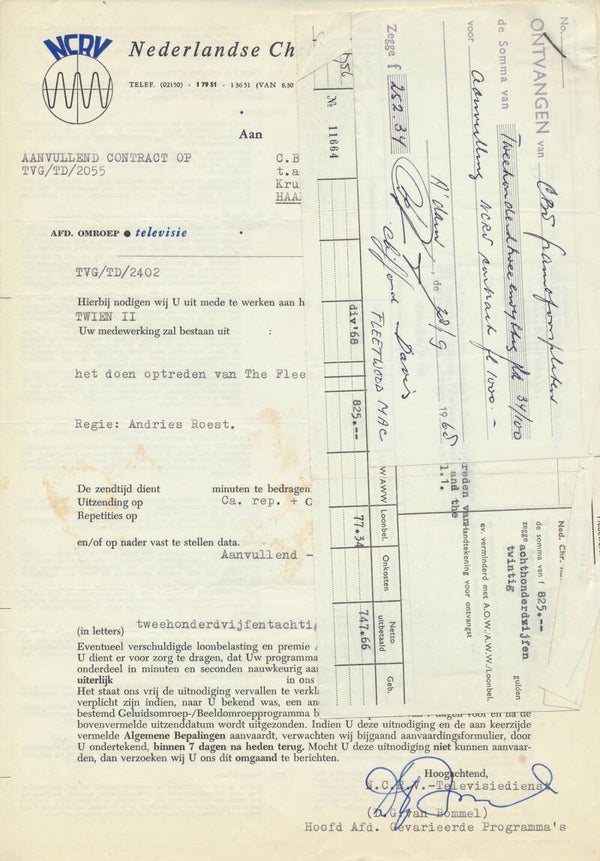 NCRV
Nederlandse Ch
TELEF. (02150) - 17951 - 13651 (VAN 8.30
Aan
AANVULLEND CONTRACT OP
TVG/TD/2055
C.B
t.a
Kru
HAA
AFD. OMROEP ● televisie
TVG/TD/2402
Hierbij nodigen wij U uit mede te werken aan h
TWIEN II
Uw medewerking zal bestaan uit :
het doen optreden van The Flee
Regie: Andries Roest.
De zendtijd dient minuten te bedragen
Uitzending op Ca. rep. + O
Repetities op
en/of op nader vast te stellen data.
Aanvullend -
(in letters) tweehonderdvijfentachtig
Eventueel verschuldigde loonbelasting en premie
U dient er voor zorg te dragen, dat Uw programma
onderdeel in minuten en seconden nauwkeurig aa
uiterlijk in ons
Het staat ons vrij de uitnodiging vervallen te verkl
verplicht zijn indien, naar U bekend was, een an
bestemd Geluidsomroep-/Beeldomroepprogramma b
bovenvermelde uitzenddatum wordt uitgezonden. Indien U deze uitnodiging en de aan keerzijde
vermelde Algemene Bepalingen aanvaardt, verwachten wij bijgaand aanvaardingsformulier, door
U ondertekend, binnen 7 dagen na heden terug. Mocht U deze uitnodiging niet kunnen aanvaar-
den, dan verzoeken wij U ons dit omgaand te berichten.
Hoogachtend,
N.C.R.V.-Televisiedienst
(D.G. van Bommel)
Hoofd Afd. Gevarieerde Programma's
No.
ONTVANGEN van CBS Grammofoonplaten
de Somma van Tweehonderdtweeenvijftig gld 34/100
voor Aanvulling NCRV contract fl 1000.-
A'dam, de 28/9 1968
Zegge f 252.34
Clifford Davis
FLEETWOOD MAC
№ 11664
div'68
825.--
W/AWW
Loonbel.
77.34
Onkosten
Netto
uitbetaald
747.66
Geb.
reden van
and the
l.1.
Handtekening voor ontvangst
Ned. Chr.
de somma van f 825.--
zegge achthonderdvijfen
twintig gulden
ev. verminderd met A.O.W./A.W.W/Loonbel.